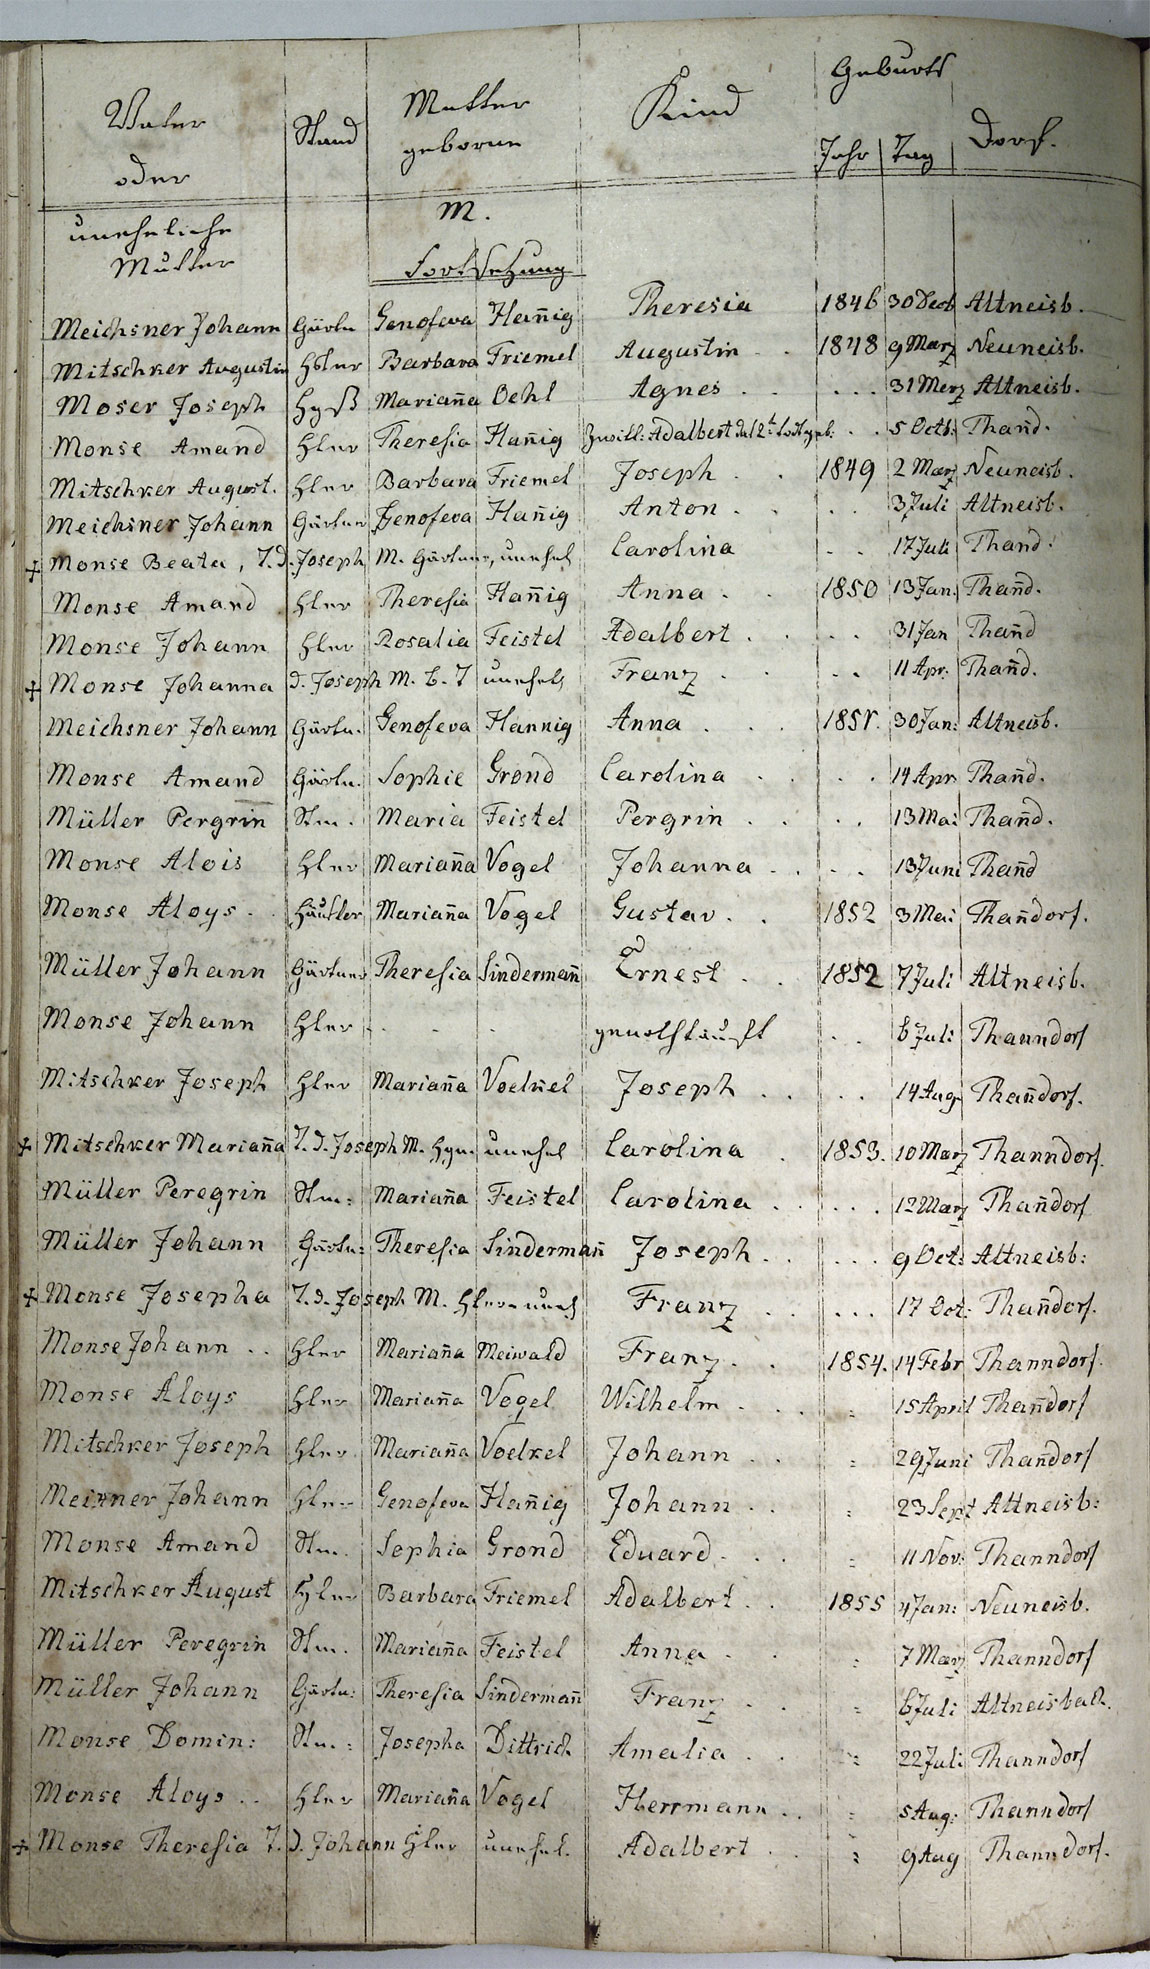 Geburts
Vater Stand Mutter Kind
geborne Jahr Tag Dorf.
oder
uneheliche M.
Mutter Fortsetzung
Meichsner Johann Gärtn Genofeva Hañig Theresia 1846 30 Decb Altneisb.
Mitschker Augustin Hsler Barbara Friemel Augustin . . 1848 9 März Neuneisb.
Moser Joseph Mariaña Oehl Agnes . . . . . 31 Merz Altneisb.
Monse Amand Hler Theresia Hañig Zwill: Adalbert das 2t. todtgeb. . . 5 Octb: Thañd.
Mitschker August. Hler Barbara Friemel Joseph . . 1849 2 März Neuneisb.
Meichsner Johann Gärtner Genofeva Hañig Anton . . . . 3 Juli Altneisb.
+ Monse Beata, T. d. Joseph M. Gärtners, unehel Carolina . . 17 Juli Thand.
Monse Amand Hler Theresia Hañig Anna . . 1850 13 Jan. Thañd.
Monse Johann Hler Rosalia Feistel Adalbert . . . . 31 Jan Thañd
+ Monse Johanna d. Joseph M. unehel Franz . . . . 11 Apr: Thañd.
Meichsner Johann Gärtn. Genofeva Hannig Anna . . . 1851. 30 Jan: Altneisb.
Monse Amand Gärtn. Sophie Grond Carolina . . . . 14 Apr Thañd.
Müller Pergrin Stm. Maria Feistel Pergrin . . . . 13 Mai Thañd.
Monse Alois Hler Mariaña Vogel Johanna . . . . 13 Juni Thañd
Monse Aloys . . Häusler Mariaña Vogel Gustav . . 1852 3 Mai Thañdorf.
Müller Johann Gärtner Theresia Sindermañ Ernest . . 1852 7 Juli Altneisb.
Monse Johann Hler . . . genothtauft . . 6 Juli Thanndorf
Mitschker Joseph Hler Mariaña Voelkel Joseph . . . . 14 Aug Thañdorf.
+ Mitschker Mariaña T. d. Joseph M. unehel Carolina . 1853. 10 März Thanndorf.
Müller Peregrin Stm: Mariaña Feistel Carolina . . . . . 12 März Thañdorf
Müller Johann Gärtn: Theresia Sindermañ Joseph . . . . . 9 Oct: Altneisb:
+ Monse Josepha T. d. Joseph M. Hlers uneh Franz . . . . . 17 Oct: Thañdorf.
Monse Johann . . Hler Mariaña Meiwald Franz . . 1854. 14 Febr Thanndorf.
Monse Aloys Hler Mariaña Vogel Wilhelm . . . : 15 April Thañdorf
Mitschker Joseph Hler Mariaña Voelkel Johann . . : 29 Juni Thañdorf
Meixner Johann Hler Genofeva Hañig Johann . . : 23 Sept Altneisb:
Monse Amand Stm. Sophia Grond Eduard . . . : 11 Nov: Thanndorf
Mitschker August Hler Barbara Friemel Adalbert . . 1855 4 Jan: Neuneisb.
Müller Peregrin Stm. Mariaña Feistel Anna . . : 7 März Thanndorf
Müller Johann Gärtn: Theresia Sindermañ Franz . . : 6 Juli Altneisbach.
Monse Domin: Stm: Josepha Dittrich Amalia . . : 22 Juli Thanndorf
Monse Aloys . . Hler Mariaña Vogel Herrmann . . : 5 Aug: Thanndorf
+ Monse Theresia T. d. Johann Hler unehel. Adalbert . . : 9 Aug Thanndorf.